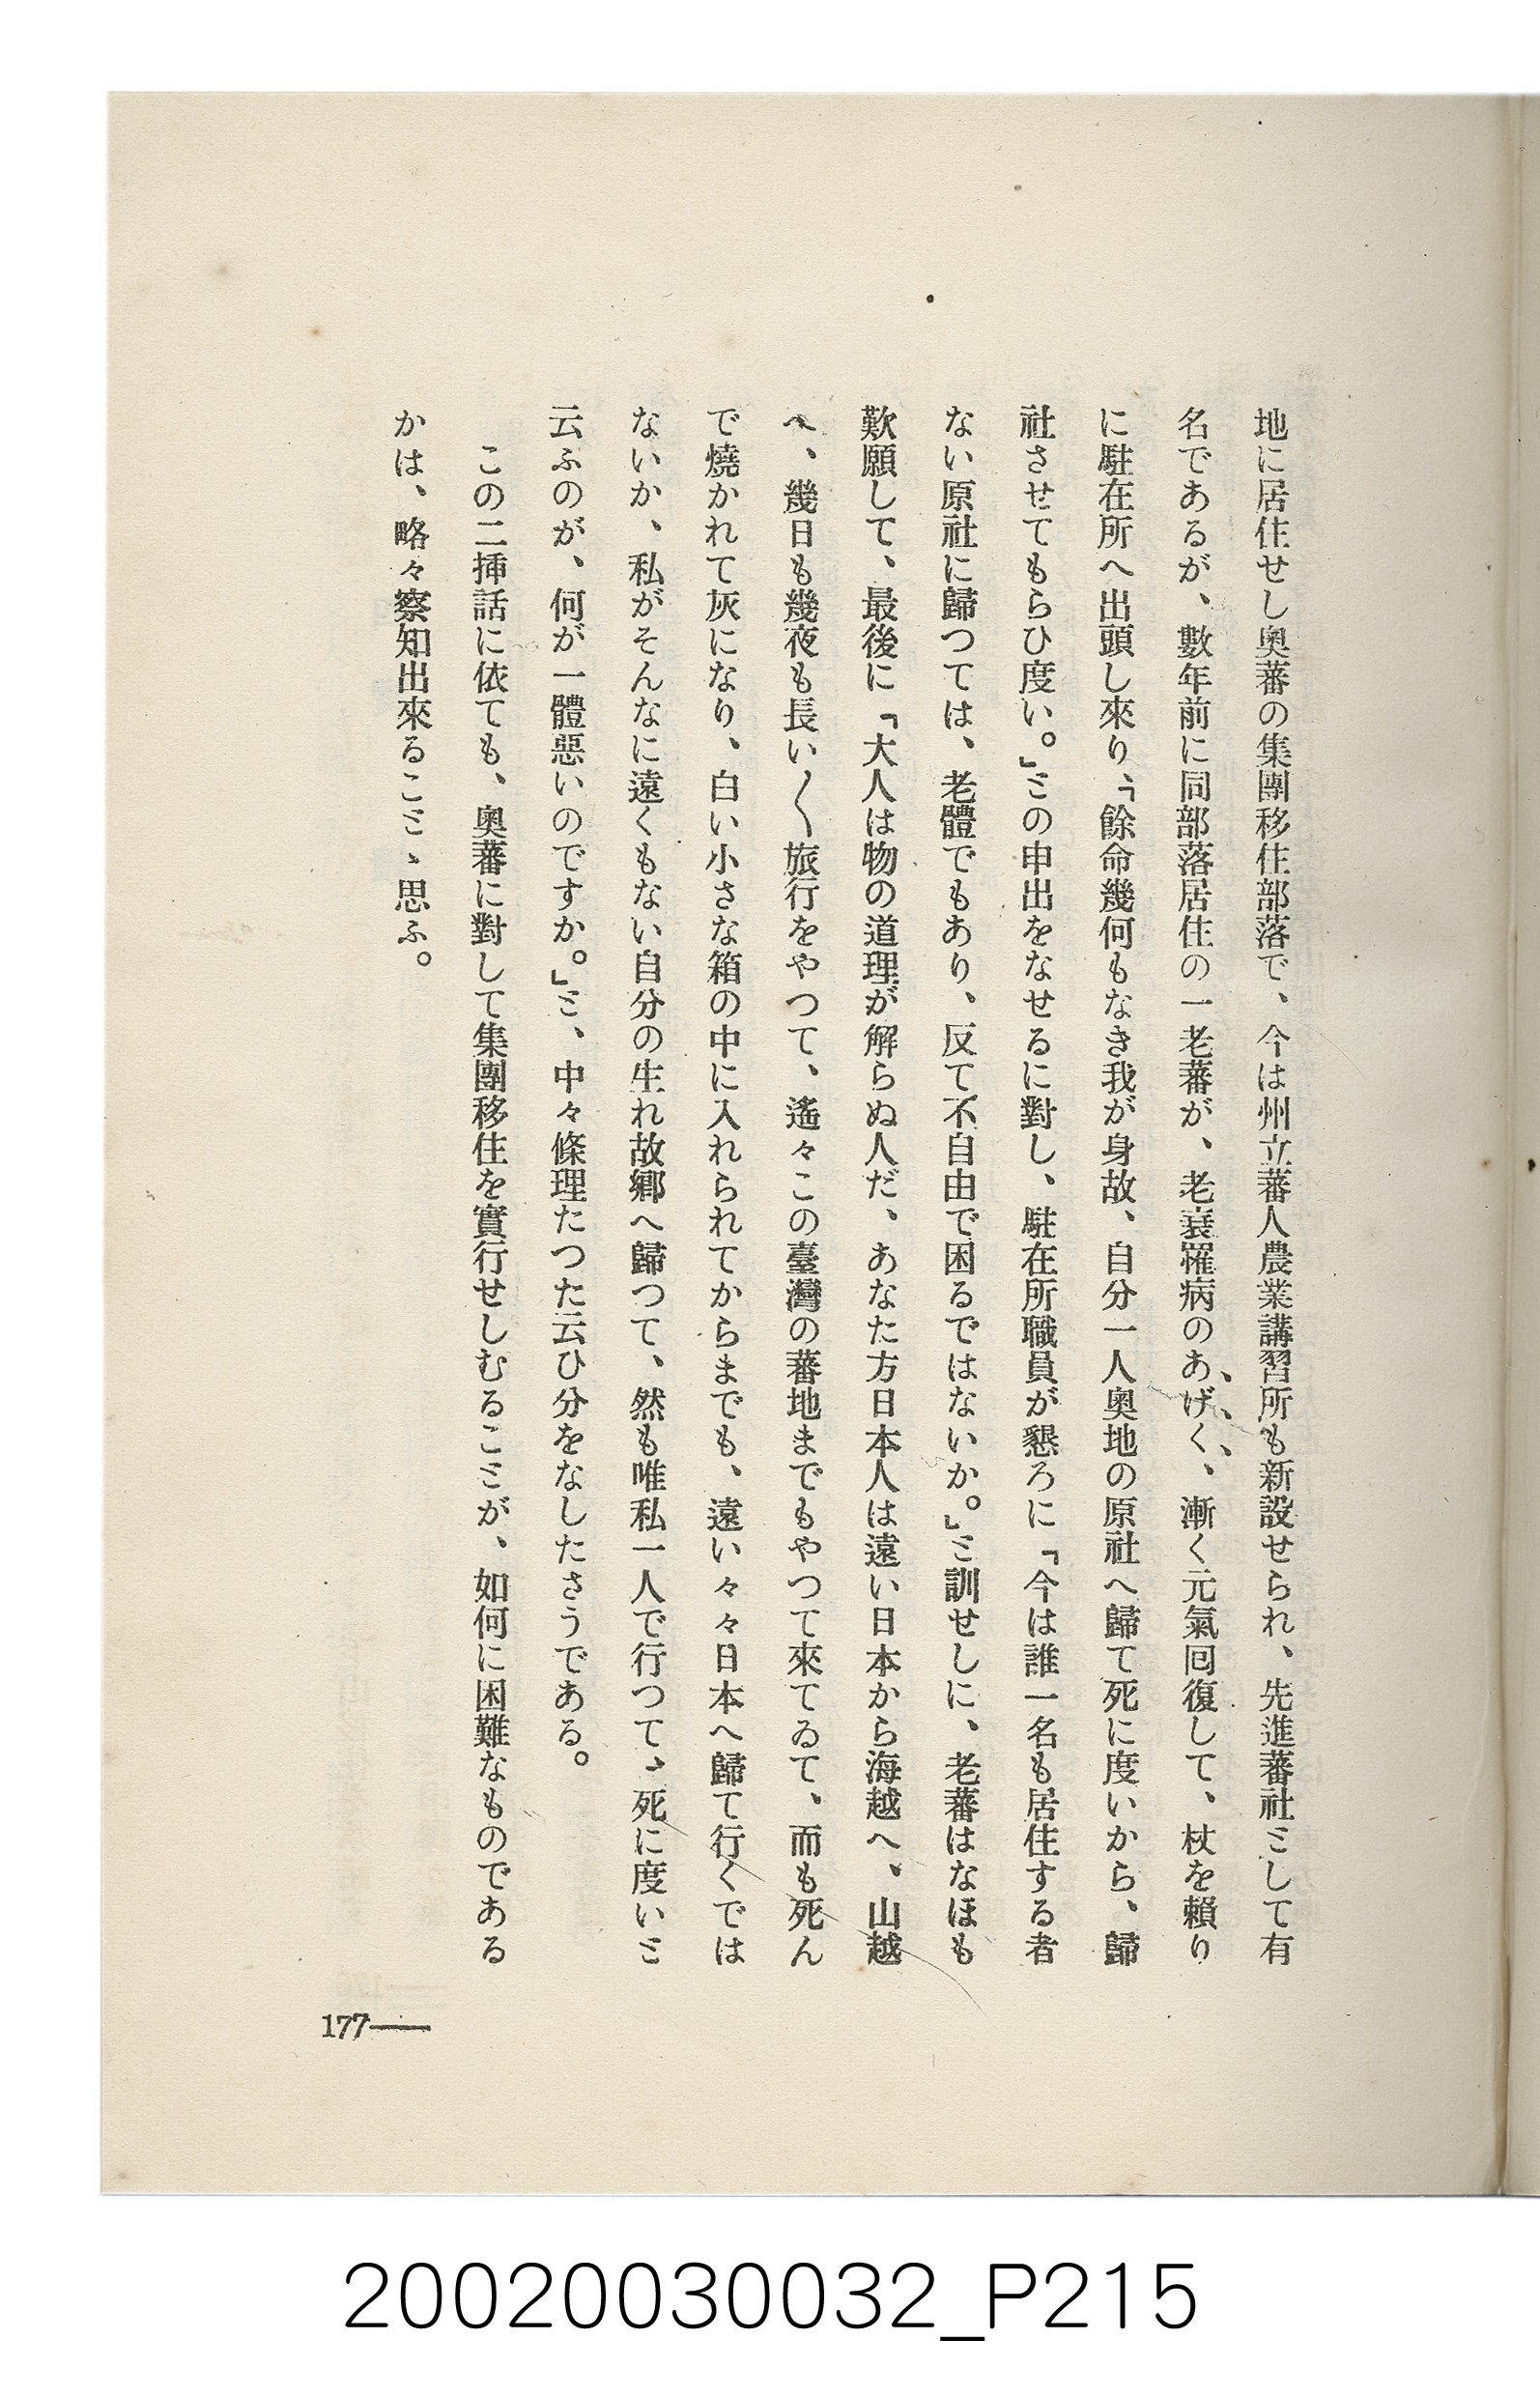 地に居住せし奥蕃の集團移住部落で、今は州立蕃人農業講習所も新設せられ、先進蕃社ミして有
名であるが、數年前に同部落居住の一老蕃が、老衰罹病のあげく、漸く元氣回復して、杖を賴り
に駐在所へ出頭し來り、「餘命幾何もなき我が身故、自分一人奥地の原社へ歸て死に度いから、歸
社させてもらひ度い。」ミの申出をなせるに對し、駐在所職員が懇ろに「今は誰一名も居住する者
ない原社に歸つては、老體でもあり、反て不自由で困るではないか。」ミ訓せしに、老蕃はなほも
歎願して、最後に「大人は物の道理が解らぬ人だ、あなた方日本人は遠い日本から海越へ、山越
へ、幾日も幾夜も長い〱旅行をやつて、遙々この臺灣の蕃地までもやつて來てゐて、而も死ん
で燒かれて灰になり、白い小さな箱の中に入れられてからまでも、遠い々々日本へ歸て行くでは
ないか、私がそんなに遠くもない自分の生れ故鄉へ歸つて、然も唯私一人で行つてゝ死に度いミ
云ふのが、何が一體惡いのですか。」ミ、中々條理たつた云ひ分をなしたさうである。
この二揷話に依ても、奥蕃に對して集團移住を實行せしむるこミが、如何に困難なものである
かは、略々察知出來るこミゝ思ふ。
177―
20020030032_P215